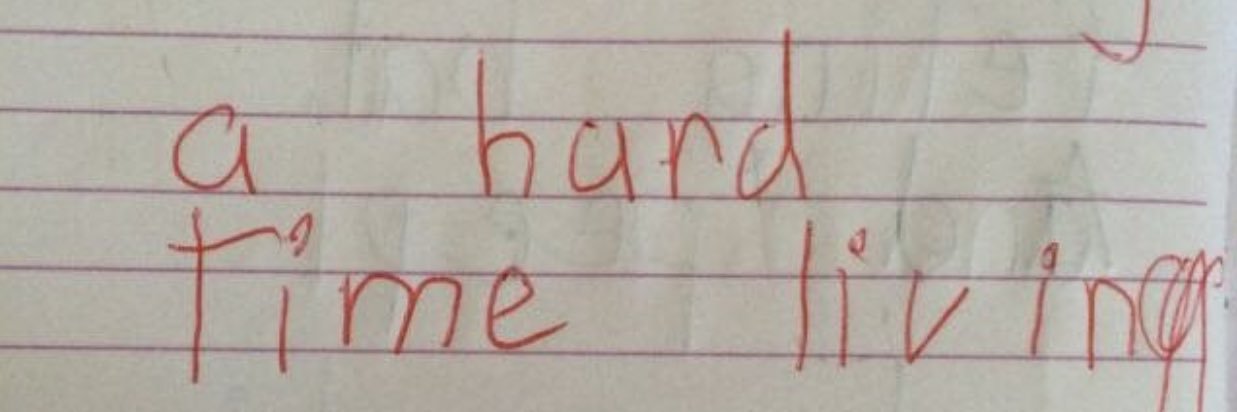 a hard
time living